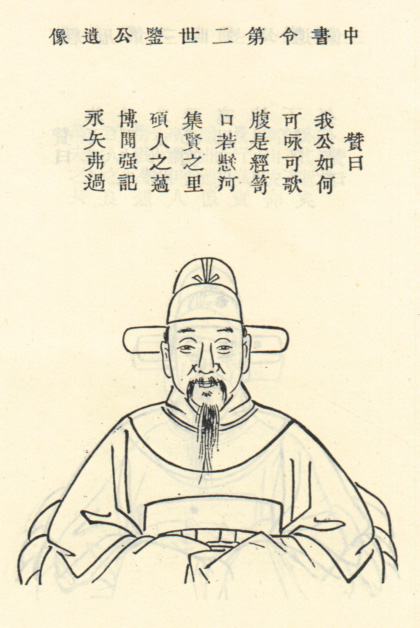 中書令第二世鑒公遺像
贊曰
我公如何
可咏可歌
腹是經笥
口若懸河
集賢之里
碩人之薖
博聞强記
永矢弗過